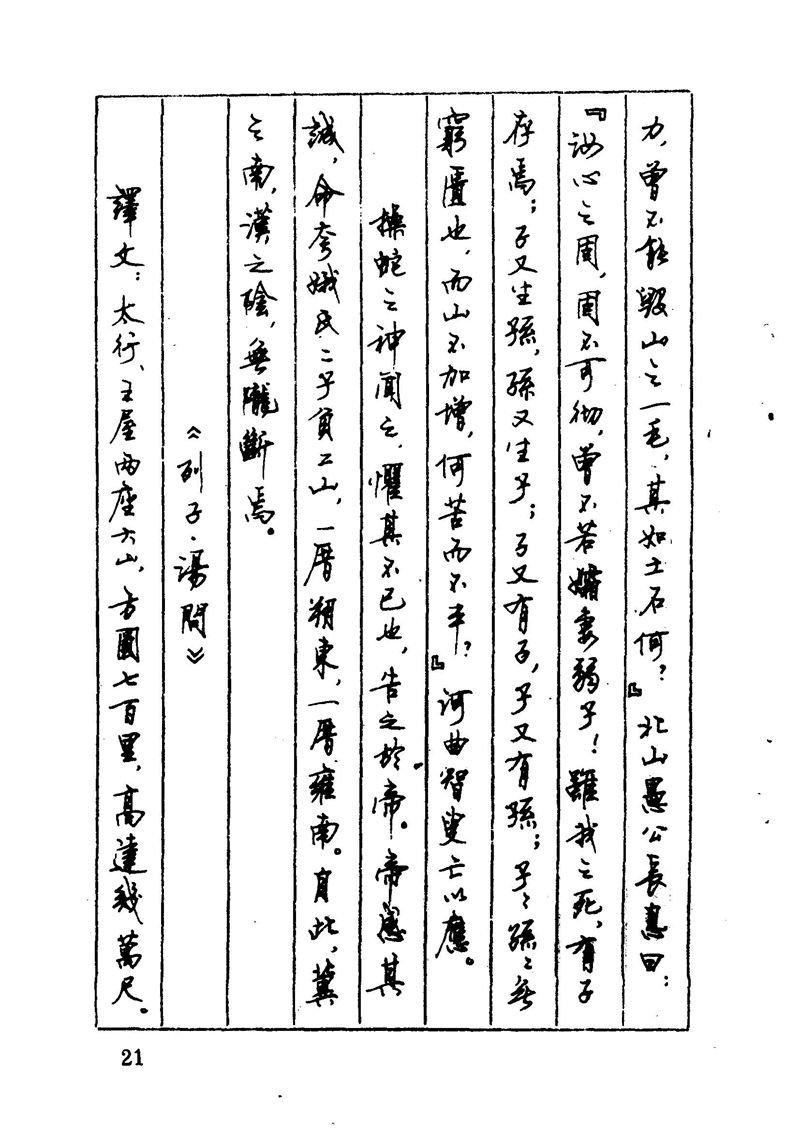 力，曾不能毀山之一毛，其如土石何？』北山愚公長息曰：
『汝心之固，固不可彻，曾不若孀妻弱子！雖我之死，有子
存焉；子又生孫，孫又生子；子又有子，子又有孫；子〻孫〻無
窮匱也，而山不加增，何苦而不平？』河曲智叟亡以應。
操蛇之神聞之，懼其不已也，告之於帝。帝感其
誠，命夸娥氏二子負二山，一厝朔東，一厝雍南。自此，冀
之南，漢之陰，無隴斷焉。
《列子·湯問》
譯文：太行、王屋兩座大山，方圓七百里，高達幾萬尺。
21